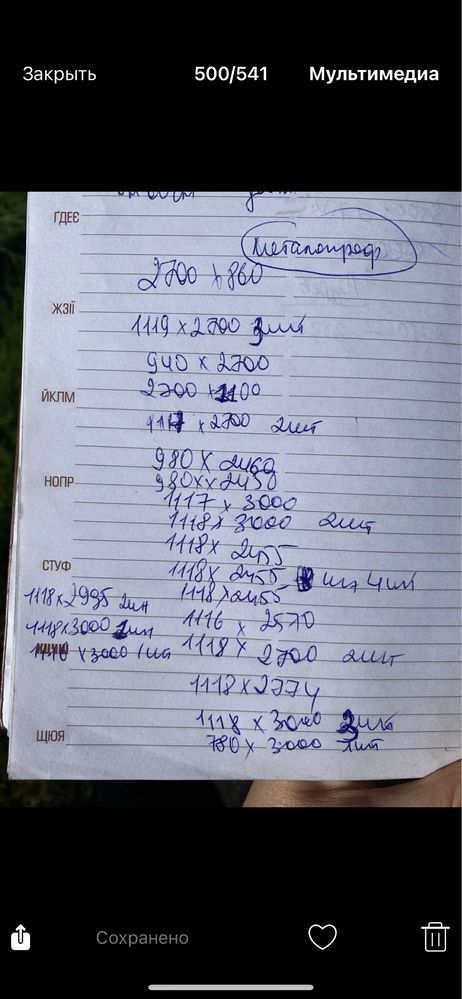 Закрыть 500/541 Мультимедиа
ГДЕЄ
Металопроф
2700 x 860
ЖЗІЇ
1119 x 2700 3шт
940 x 2700
ЙКЛМ
2700 x 1100
1117 x 2700 2шт
980 X 2460
НОПР
980xx2450
1117 x 3000
1118x 3000 2шт
1118x 2455
СТУФ
1118x 2455 шт 4шт
1118x2455
1118x2995 2шт
1116 x 2570
1118x3000 2шт
1118x 2700 2шт
1116 x3000 1шт
1118x2774
1118 x 3000 3шт
ЩЮЯ
780x 3000 1шт
Сохранено